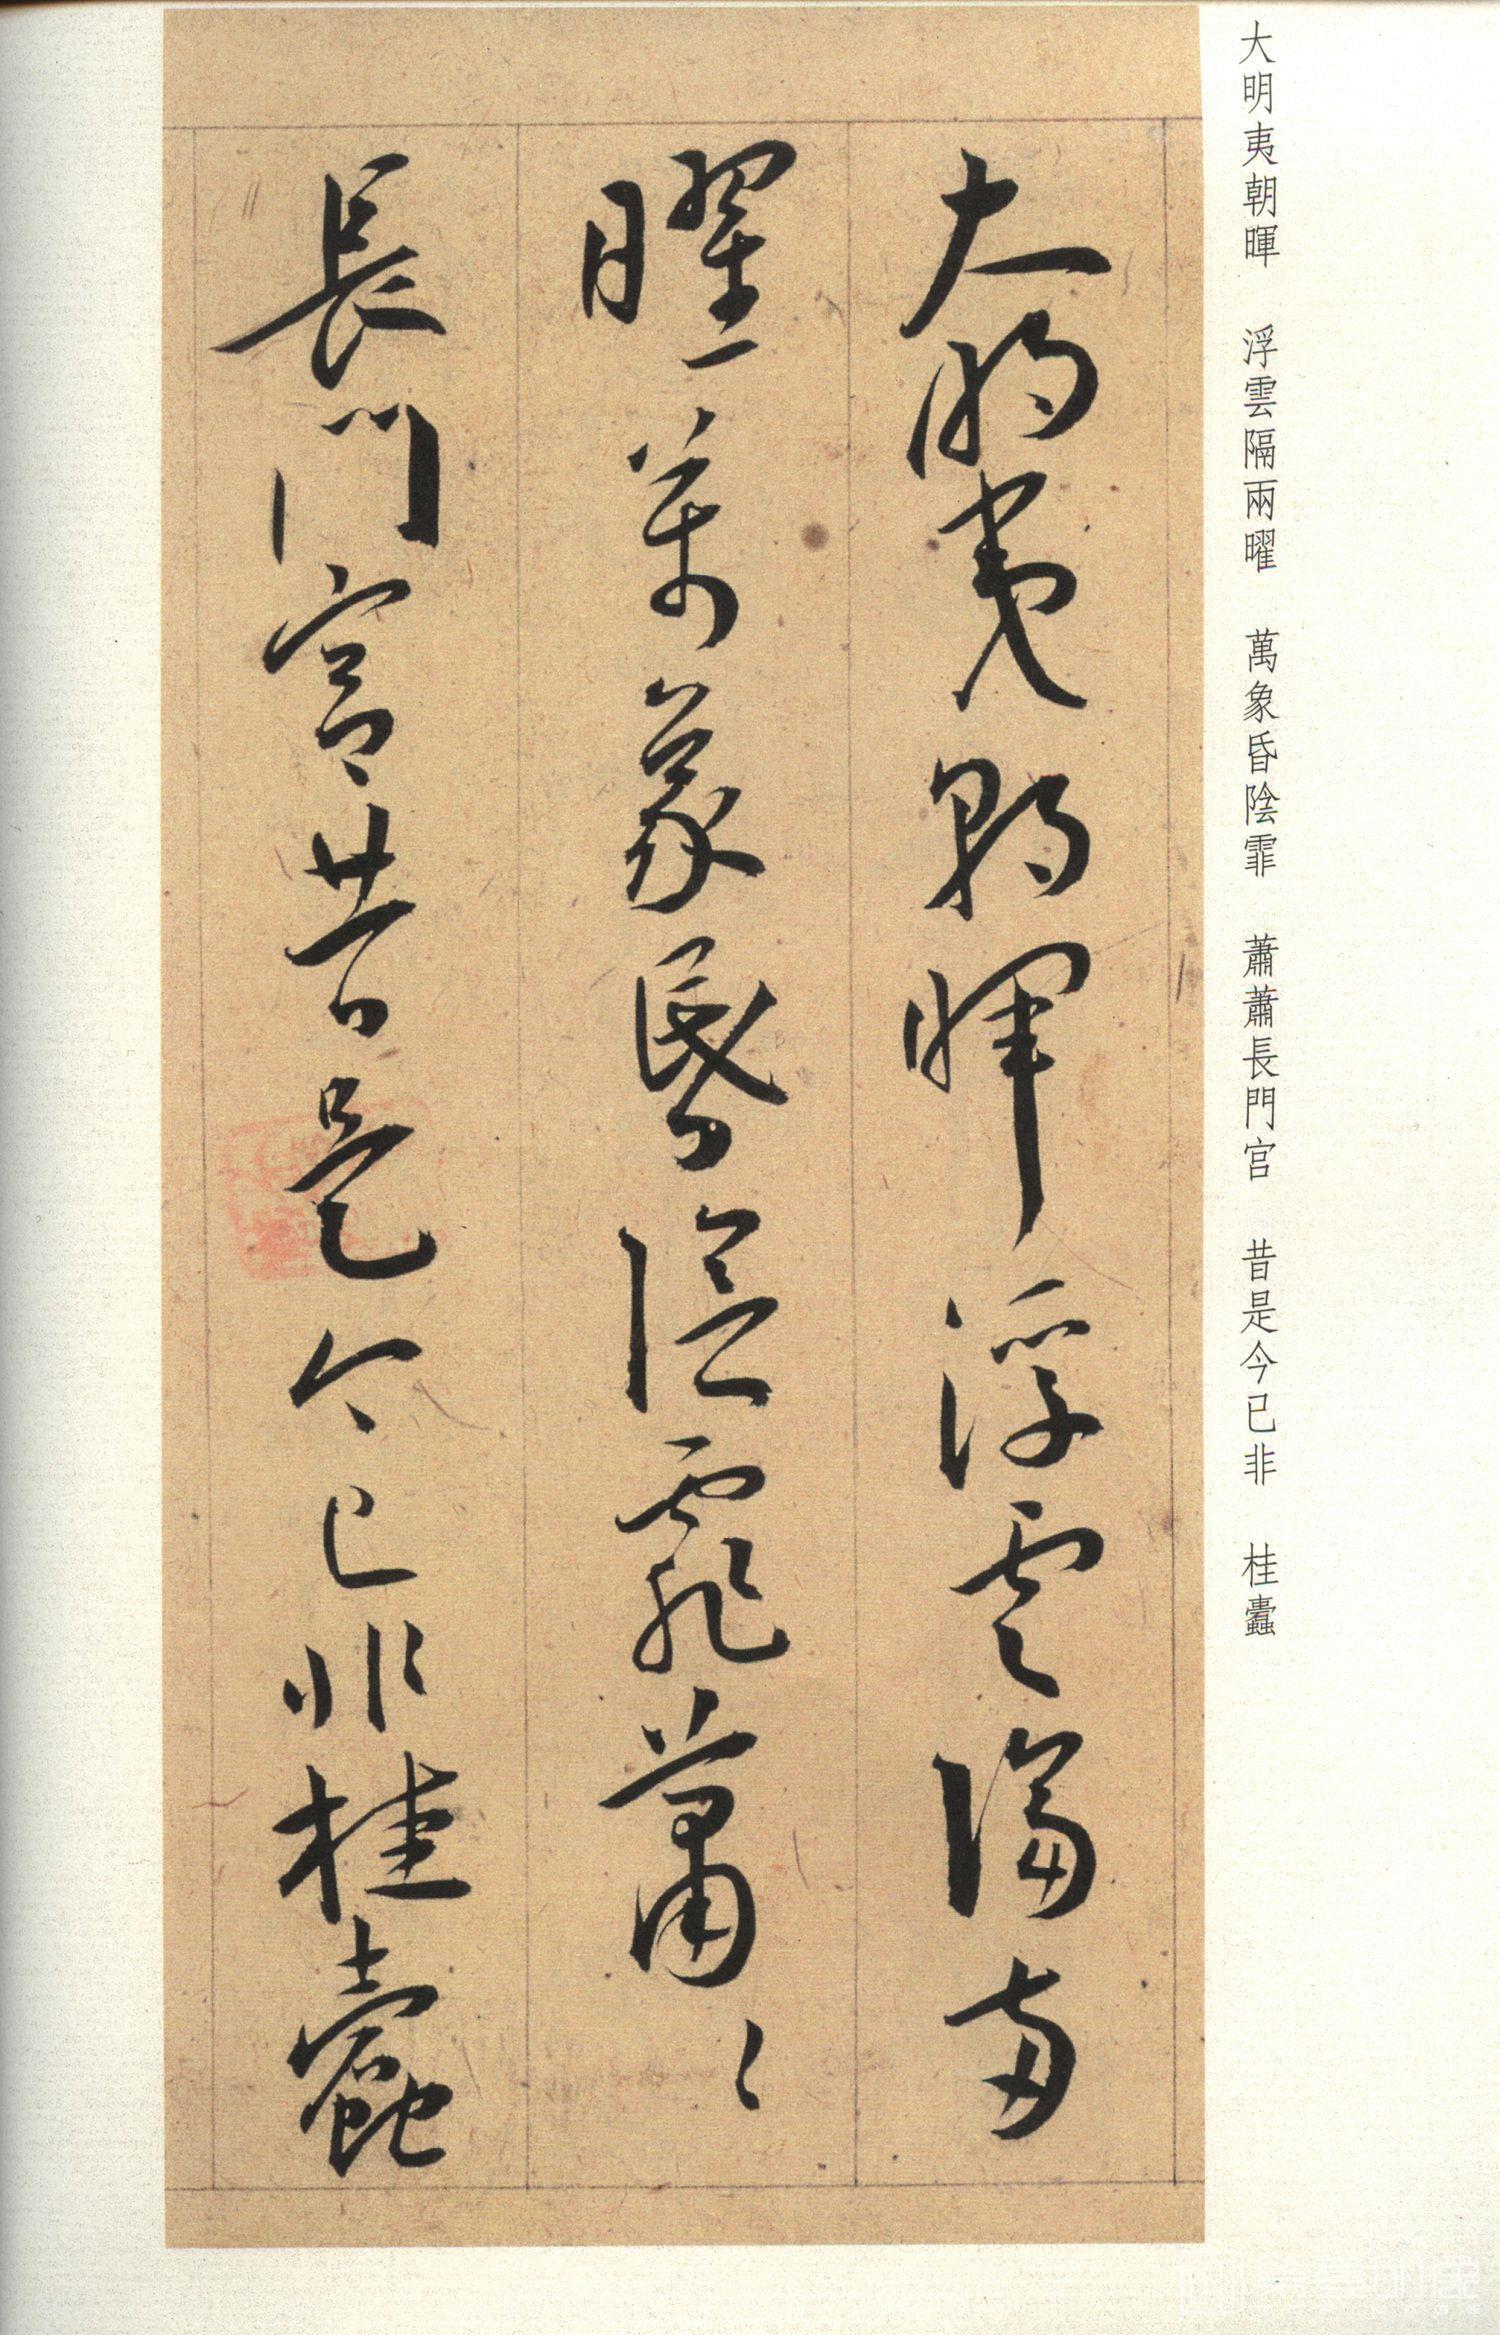 大明夷朝暉　浮雲隔兩曜　萬象昏陰霏　蕭蕭長門宮　昔是今已非　桂蠹
大明夷朝暉浮雲隔兩
曜萬象昏陰霏蕭〻
長門宮昔是今已非桂蠹